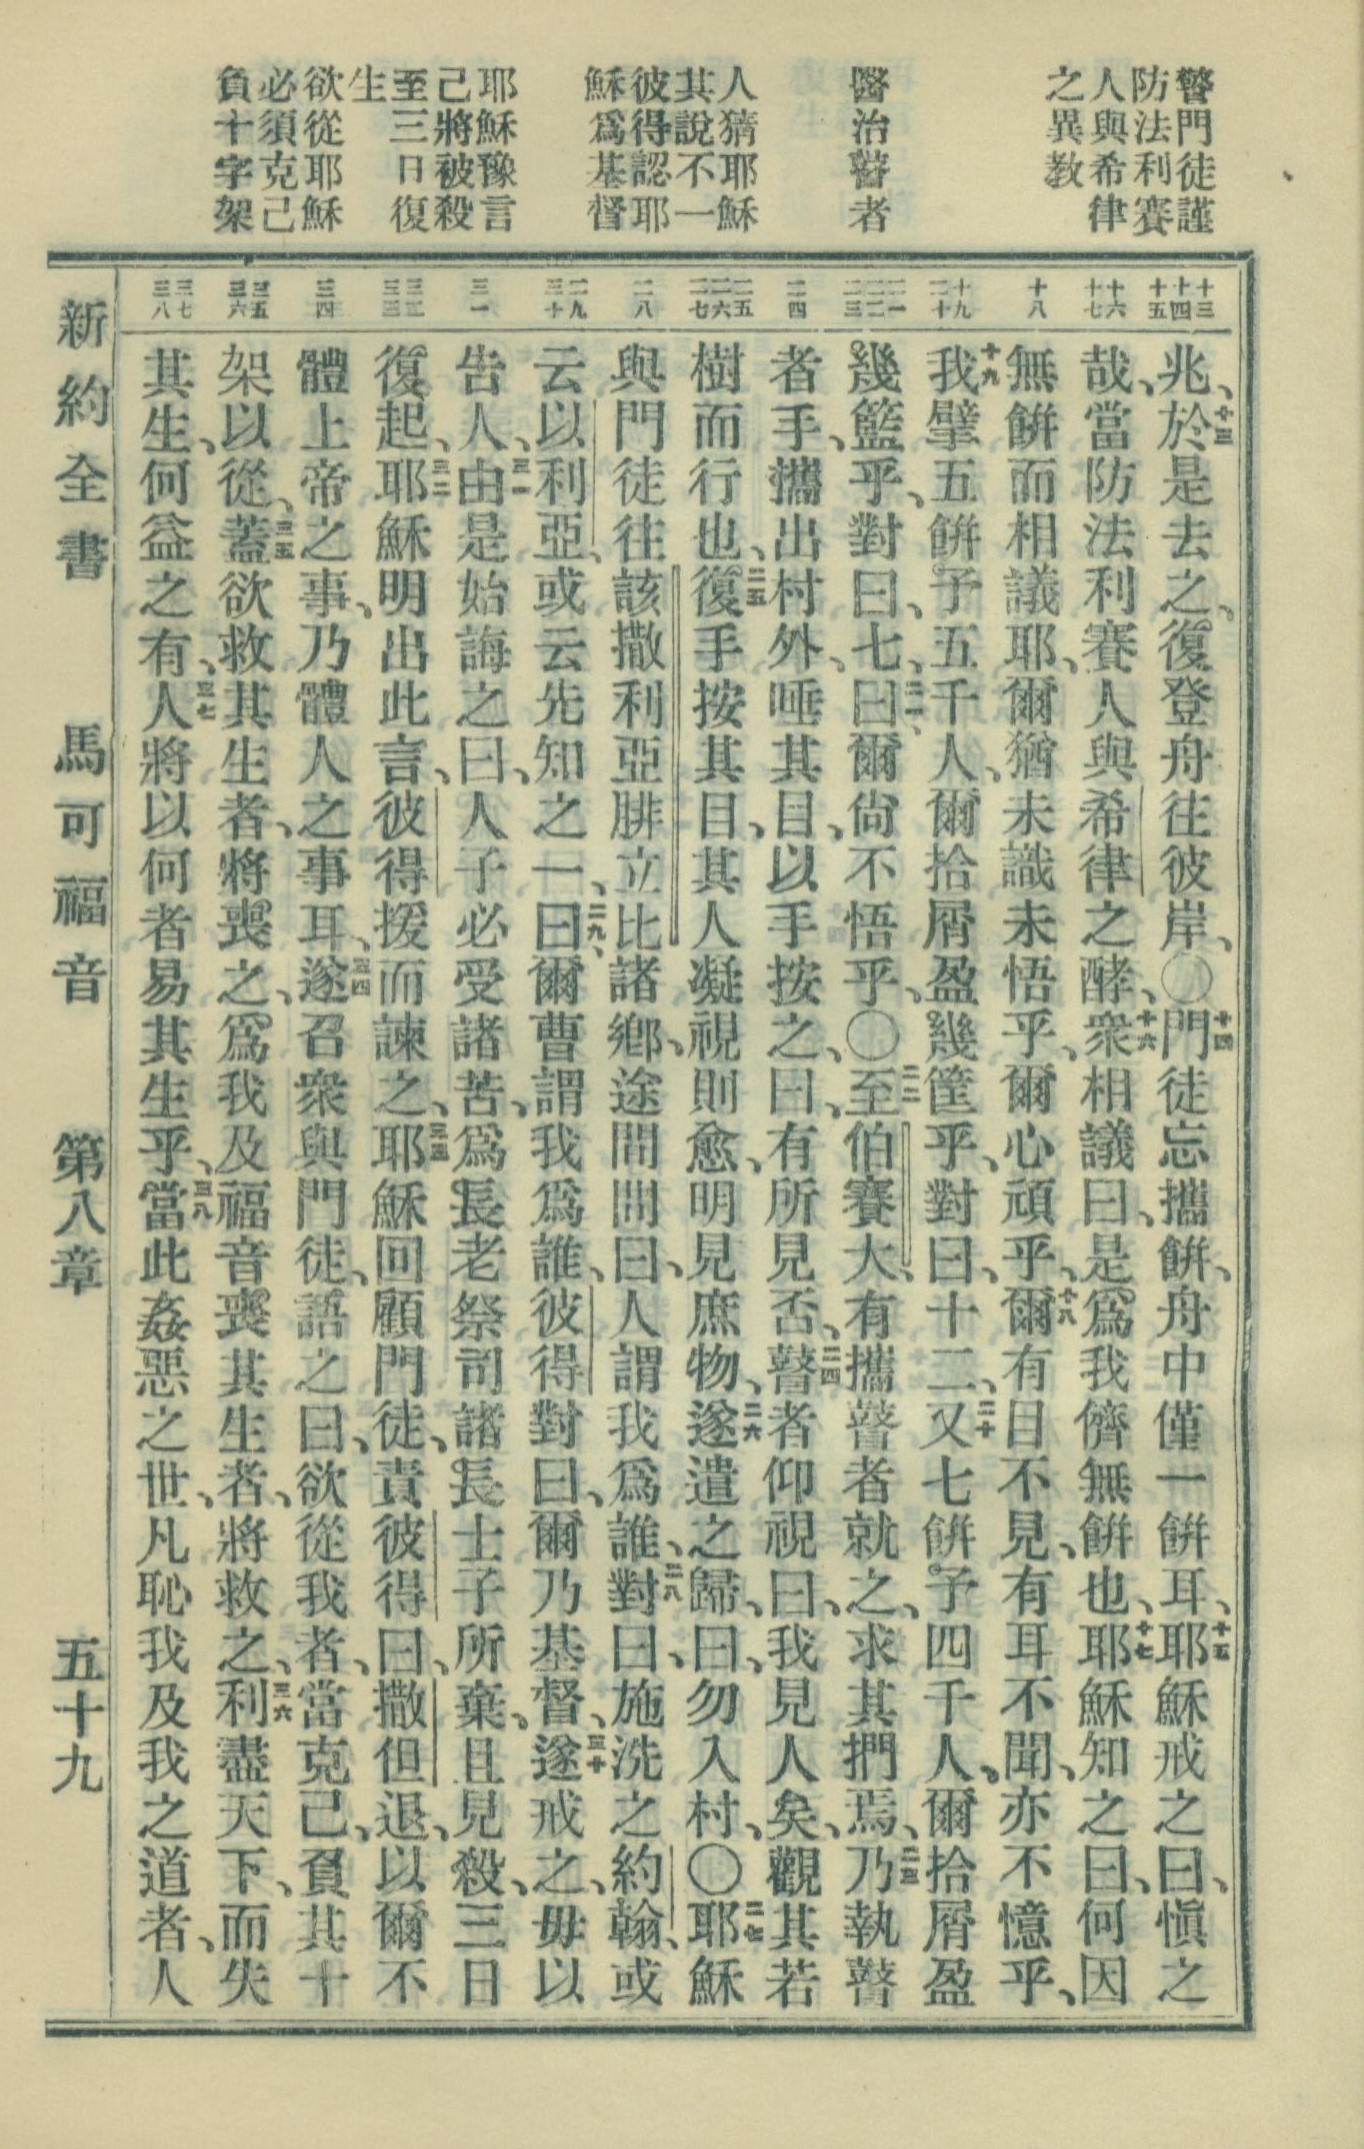 警門徒謹
防法利賽
人與希律
之異教
醫治瞽者
人猜耶穌
其說不一
彼得認耶
穌爲基督
耶穌豫言
己將被殺
至三日復
生
欲從耶穌
必須克己
負十字架
十三
十四
十五
十六
十七
十八
十九
二十
二一
二二
二三
二四
二五
二六
二七
二八
二九
三十
三一
三二
三三
三四
三五
三六
三七
三八
兆、十三於是去之、復登舟往彼岸、〇十四門徒忘攜餅、舟中僅一餅耳、十五耶穌戒之曰、愼之
哉、當防法利賽人與希律之酵、十六衆相議曰、是爲我儕無餅也、十七耶穌知之曰、何因
無餅而相議耶、爾猶未識未悟乎、爾心頑乎、十八爾有目不見、有耳不聞、亦不憶乎、
十九我擘五餅予五千人、爾拾屑盈幾筐乎、對曰、十二、二十又七餅予四千人、爾拾屑盈
幾籃乎、對曰、七、二一曰、爾尙不悟乎、〇二二至伯賽大、有攜瞽者就之、求其捫焉、二三乃執瞽
者手、攜出村外、唾其目、以手按之、曰、有所見否、二四瞽者仰視曰、我見人矣、觀其若
樹而行也、二五復手按其目、其人凝視則愈、明見庶物、二六遂遣之歸、曰、勿入村、〇二七耶穌
與門徒往該撒利亞腓立比諸鄕、途間問曰、人謂我爲誰、二八對曰、施洗之約翰、或
云以利亞、或云先知之一、二九曰、爾曹謂我爲誰、彼得對曰、爾乃基督、三十遂戒之、毋以
告人、三一由是始誨之曰、人子必受諸苦、爲長老祭司諸長士子所棄、且見殺、三日
復起、三二耶穌明出此言、彼得援而諫之、三三耶穌回顧門徒、責彼得曰、撒但退、以爾不
體上帝之事、乃體人之事耳、三四遂召衆與門徒、語之曰、欲從我者、當克己、負其十
架以從、三五蓋欲救其生者、將喪之、爲我及福音喪其生者、將救之、三六利盡天下、而失
其生、何益之有、三七人將以何者易其生乎、三八當此姦惡之世、凡恥我及我之道者、人
新約全書　馬可福音　第八章　五十九